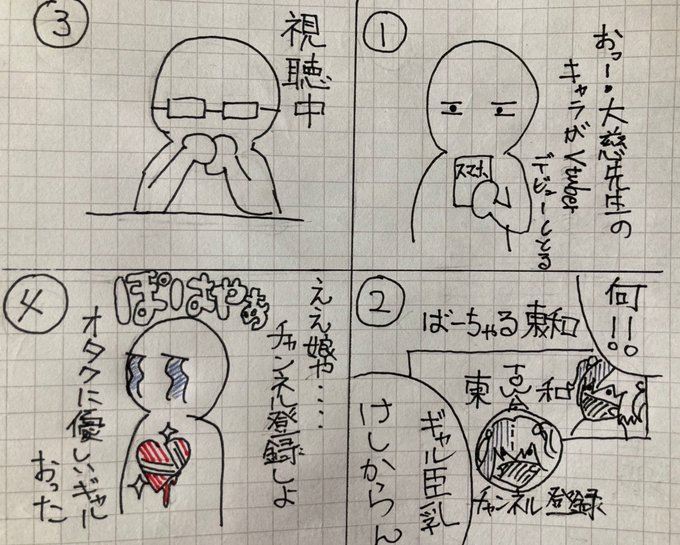 ①
おっー・大慈先生の
キャラがVtuber
デビューしとる
スマホ
②
何!!
ばーちゃる東和
東 和
チャンネル登録
ギャル臣乳
けしからん
③
視聴中
④
ええ娘や・・・・
チャンネル登録しよ
ぽはやぁ
オタクに優しいギャル
おった